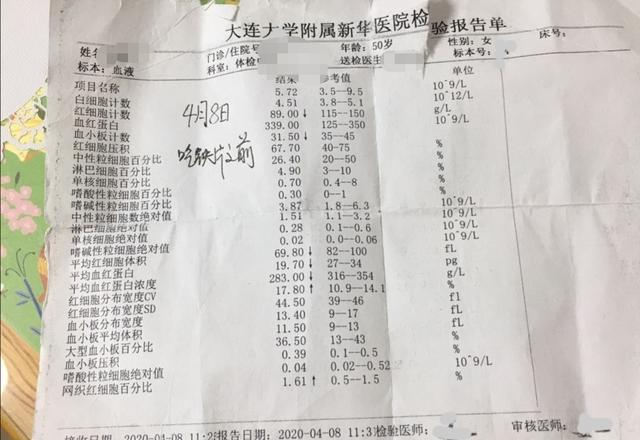 大连大学附属新华医院检验报告单
姓名 门诊/住院号 年龄: 50岁 性别: 女 床号:
标本: 血液 科室: 体检 送检医生 标本号:
项目名称 结果 参考值 单位
白细胞计数 5.72 3.5--9.5 10^9/L
红细胞计数 4.51 3.8--5.1 10^12/L
血红蛋白 89.00 ↓ 115--150 g/L
血小板计数 339.00 125--350 10^9/L
红细胞压积 31.50 ↓ 35--45 %
中性粒细胞百分比 67.70 40--75 %
淋巴细胞百分比 26.40 20--50 %
单核细胞百分比 4.90 3--10 %
嗜酸性粒细胞百分比 0.70 0.4--8 %
嗜碱性粒细胞百分比 0.30 0--1 %
中性粒细胞数绝对值 3.87 1.8--6.3 10^9/L
淋巴细胞绝对值 1.51 1.1--3.2 10^9/L
单核细胞绝对值 0.28 0.1--0.6 10^9/L
嗜碱性粒细胞绝对值 0.02 0.0--0.06 10^9/L
平均红细胞体积 69.80 ↓ 82--100 fL
平均血红蛋白 19.70 ↓ 27--34 pg
平均血红蛋白浓度 283.00 ↓ 316--354 g/L
红细胞分布宽度CV 17.80 ↑ 10.9--14.1 %
红细胞分布宽度SD 44.50 39--46 fl
血小板分布宽度 13.40 9--17 fL
血小板平均体积 11.50 9--13 fL
大型血小板百分比 36.50 13--43 %
血小板压积 0.39 0.1--0.5 %
嗜酸性粒细胞绝对值 0.04 0.02--0.52 10^9/L
网织红细胞百分比 1.61 ↑ 0.5--1.5 %
4月8日
吃铁片之前
接收日期: 2020-04-08 11:2 报告日期: 2020-04-08 11:3 检验医师: 审核医师: